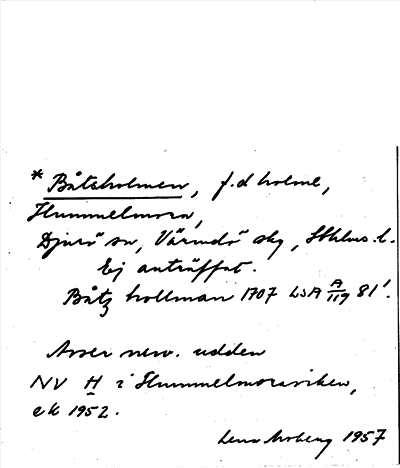 * Båtsholmen, f.d holme,
Hummelmora,
Djurö sn, Värmdö skg, Sthlms l.
Ej anträffat.
Båtz hollman 1707 LSA A/119 81'.
Avser nuv. udden
NV H i Hummelmoraviken,
ek 1952.
Lena Moberg 1957